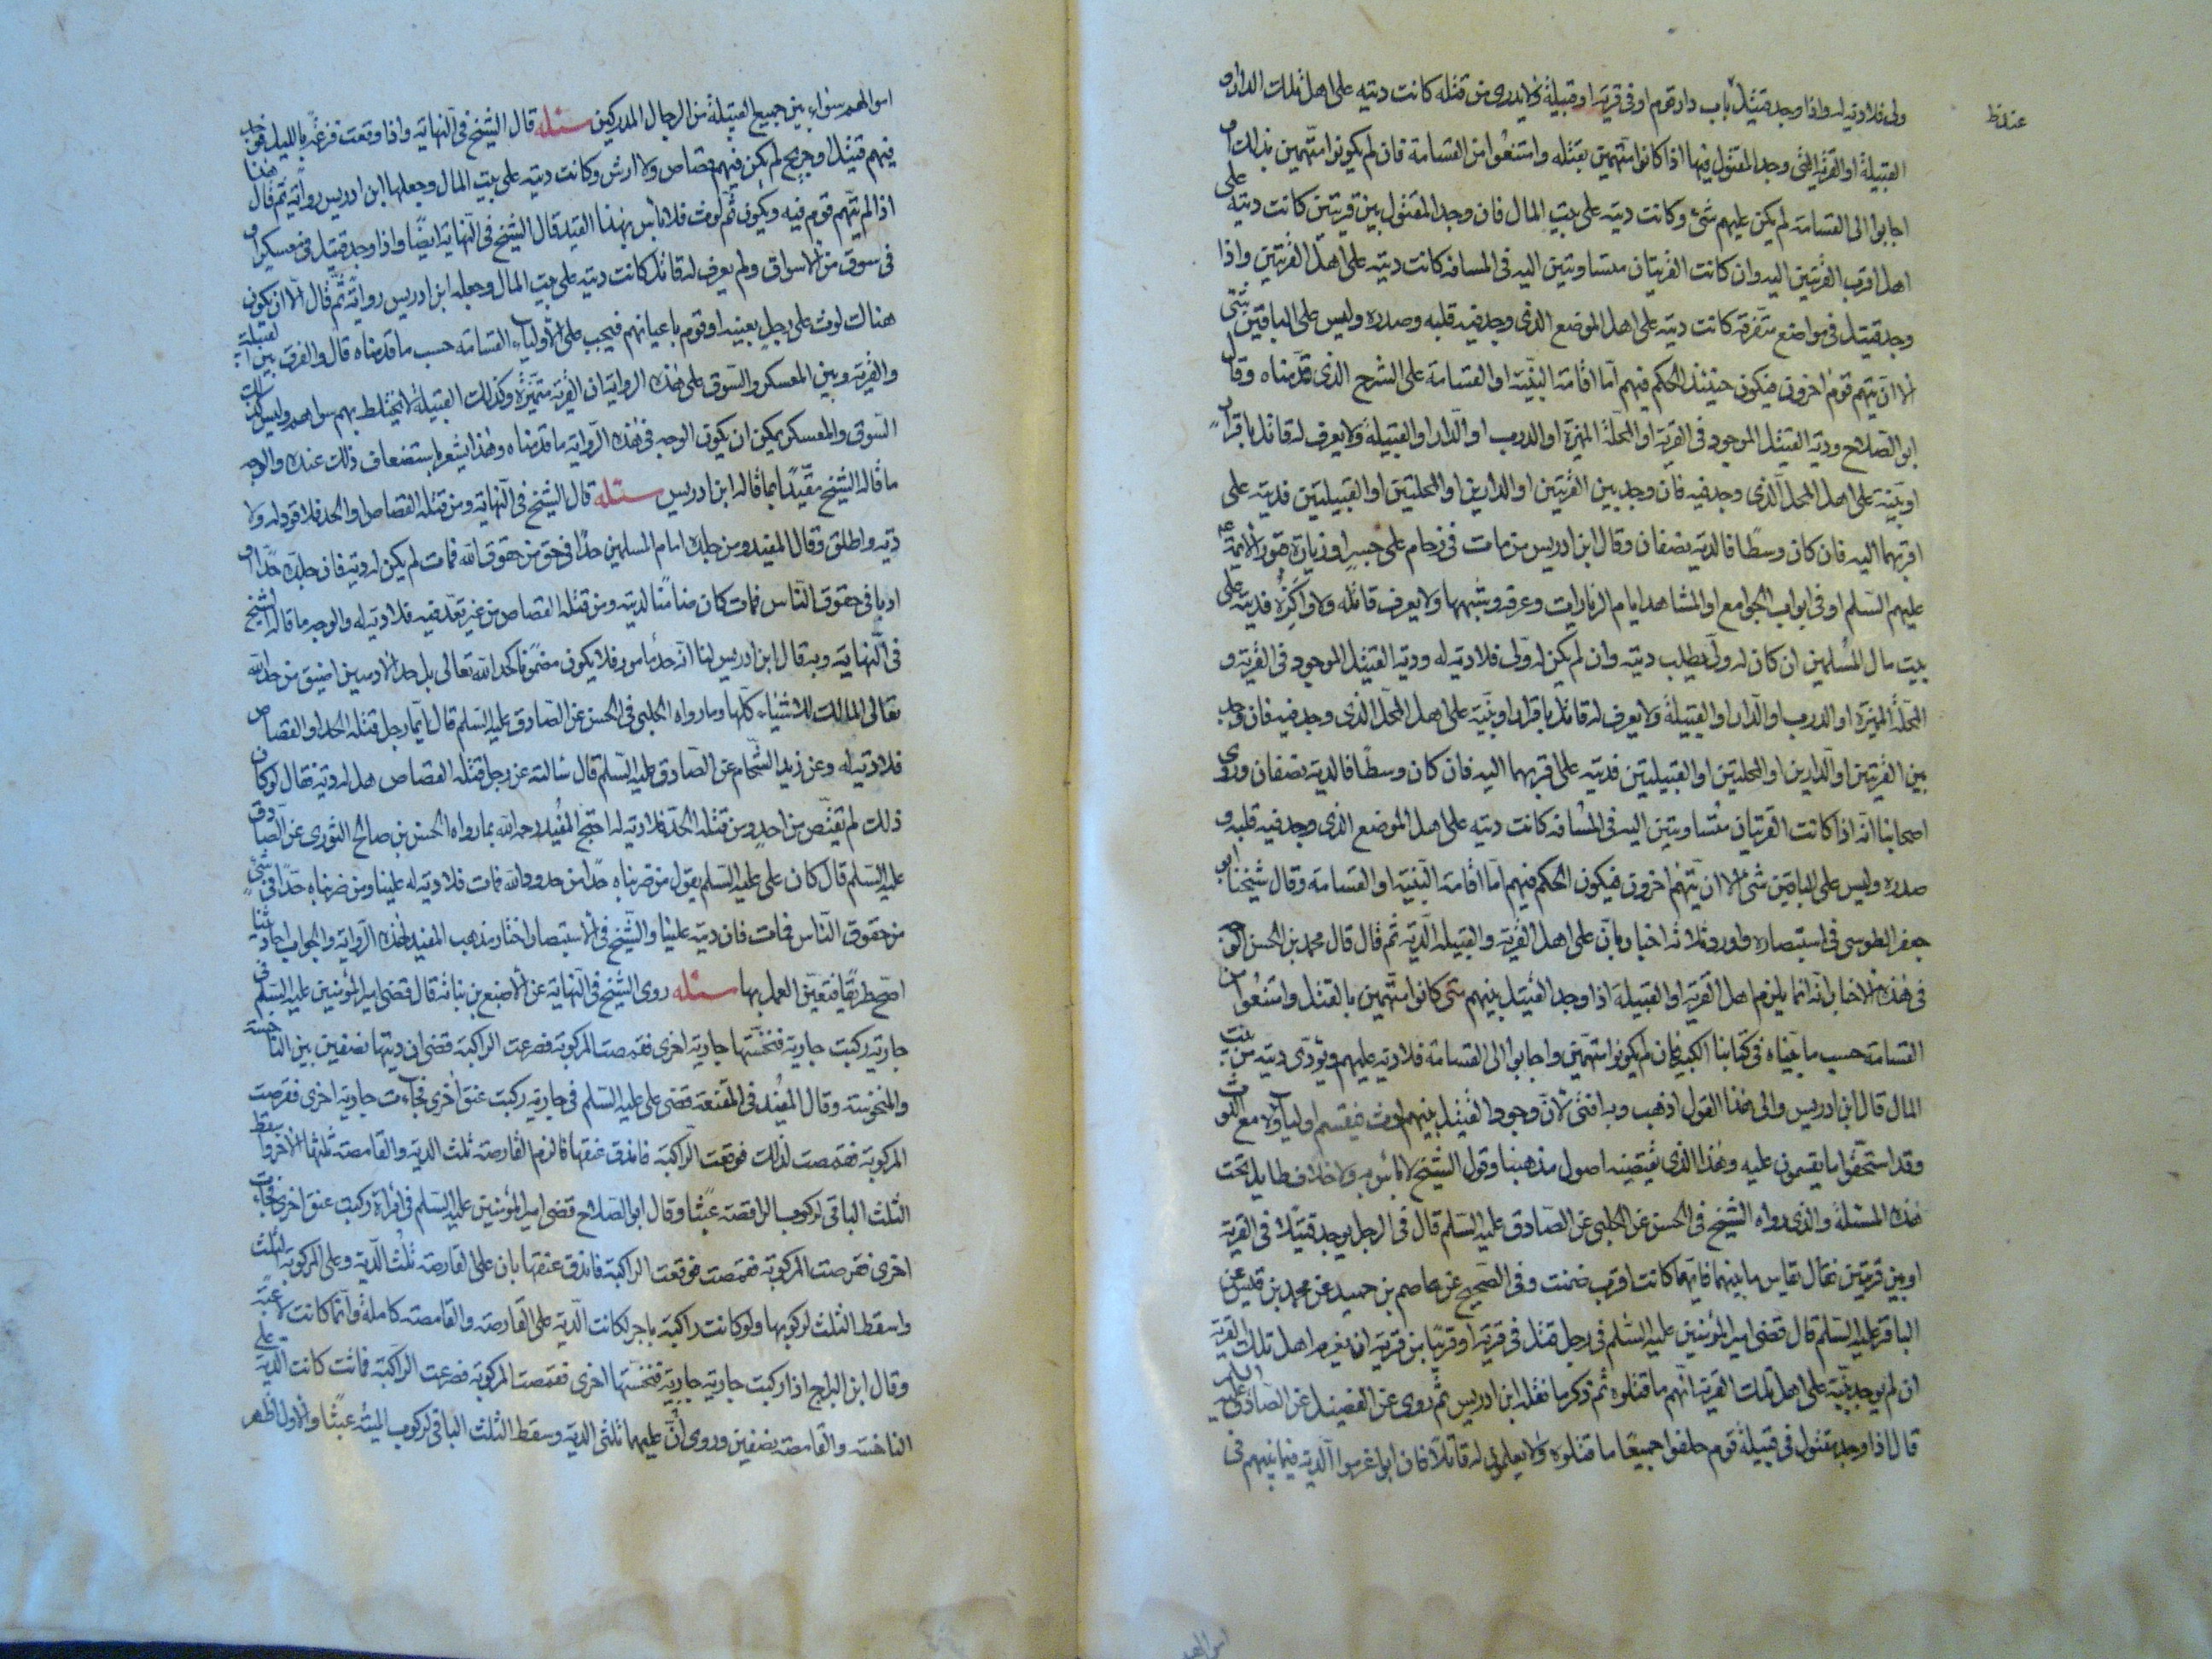 ولي فلا دية له واذا وجد قتيل بباب دار قوم او في قرية او قبيلة ولا يدرى من قتله كانت ديته على اهل تلك الدار و
القبيلة او القرية التي وجد المقتول فيها اذا كانوا متهمين بقتله وامتنعوا من القسامة فان لم يكونوا متهمين بذلك او
اجابوا الى القسامة لم يكن عليهم شئ وكانت ديته على بيت المال فان وجد المقتول بين قريتين كانت ديته على
اهل اقرب القريتين اليه وان كانت القريتان متساويتين اليه في المسافة كانت ديته على اهل القريتين واذا
وجد قتيل في مواضع متفرقة كانت ديته على اهل الموضع الذي وجد فيه قلبه وصدره وليس على الباقين شئ
الا ان يتهم قوم اخرون فيكون حينئذ الحكم فيهم اما اقامة البينة او القسامة على الشرح الذي قدمناه وقال
ابو الصلاح ودية القتيل الموجود في القرية او المحلة المتميزة او الدرب او الدار او القبيلة ولا يعرف له قاتل باقرار
او بينة على اهل المحل الذي وجد فيه فان وجد بين القريتين او الدارين او المحلتين او القبيلتين فديته على
اقربهما اليه فان كان وسطا فالدية نصفان وقال ابن ادريس من مات في زحام على جسر او زيارة قبور الائمة
عليهم السلم او في ابواب الجوامع او المشاهد ايام الزيارات وعرفة وشبهها ولا يعرف قاتله ولا واكزه فديته على
بيت مال المسلمين ان كان له ولي يطلب ديته وان لم يكن له ولى فلا دية له ودية القتيل الموجود في القرية و
المحلة المتميزة او الدرب او الدار او القبيلة ولا يعرف له قاتل باقرار او بينة على اهل المحل الذي وجد فيه فان وجد
بين القريتين او الدارين او المحلتين او القبيلتين فديته على اقربهما اليه فان كان وسطا فالدية نصفان وروى
اصحابنا انه اذا كانت القريتان متساويتين اليه في المسافة كانت ديته على اهل الموضع الذي وجد فيه قلبه و
صدره وليس على الباقين شئ الا ان يتهم اخرون فيكون الحكم فيهم اما اقامة البينة او القسامة وقال شيخنا ابو
جعفر الطوسى في استبصاره واورد ثلاثة اخبار بان على اهل القرية والقبيلة الدية ثم قال قال محمد بن الحسن الوجه
في هذه الاخبار انه انما يلزم اهل القرية او القبيلة اذا وجد القتيل بينهم متى كانوا متهمين بالقتل وامتنعوا من
القسامة حسب ما بيناه في كتابنا الكبير فان لم يكونوا متهمين واجابوا الى القسامة فلا دية عليهم ويؤدى ديته من بيت
المال قال ابن ادريس والى هذا القول اذهب وبه افتى لان وجود القتيل بينهم لوث فيقسم اولياؤه مع اللوث
وقد استحقوا ما يقسمون عليه وهذا الذي يقتضيه اصول مذهبنا وقول الشيخ لا باس به ولا خلاف طايل تحت
هذه المسئلة والذي رواه الشيخ في الحسن عن الحلبي عن الصادق عليه السلم قال في الرجل يوجد قتيلا في القرية
او بين قريتين فقال يقاس ما بينهما فايهما كانت اقرب ضمنت وفي الصحيح عن عاصم بن حميد عن محمد بن قيس عن
الباقر عليه السلم قال قضى امير المؤمنين عليه السلم في رجل قتل في قرية او قريبا من قرية ان يغرم اهل تلك القرية
ان لم يوجد بينة على اهل تلك القرية انهم ما قتلوه ثم ذكر ما نقله ابن ادريس ثم روى عن الفضيل عن الصادق عليه السلم
قال اذا وجد مقتول في قبيلة قوم حلفوا جميعا ما قتلوه ولا يعلمون له قاتلا فان ابوا غرموا الدية فيما بينهم في
اموالهم سواء بين جميع القبيلة من الرجال المدركين مسئله قال الشيخ في النهاية واذا وقعت فزعة بالليل فوجد
فيهم قتيل او جريح لم يكن فيهم قصاص ولا ارش وكانت ديته على بيت المال وجعلها ابن ادريس رواية ثم قال هذا
اذا لم يتهم قوم فيه ويكون ثم لوث فلا باس بهذا القيد قال الشيخ في النهاية ايضا واذا وجد قتيل في معسكر او
في سوق من الاسواق ولم يعرف له قاتل كانت ديته على بيت المال وجعله ابن ادريس رواية ثم قال الا ان يكون
هناك لوث على رجل بعينه او قوم باعيانهم فيجب على الاولياء القسامة حسب ما قدمناه قال والفرق بين القبيلة
والقرية وبين المعسكر والسوق على هذه الرواية ان القرية متميزة وكذلك القبيلة لا يختلط بهم سواهم وليس كذلك
السوق والمعسكر يمكن ان يكون الوجه في هذه الرواية ما قدمناه وهذا يشعر باستضعاف ذلك عنده والوجه
ما قاله الشيخ مقيدا بما قاله ابن ادريس مسئله قال الشيخ في النهاية ومن قتله القصاص او الحد فلا قود له ولا
دية واطلق وقال المفيد ومن جلده امام المسلمين حدا في حق من حقوق الله فمات لم يكن له دية فان جلده حدا او
ادبا في حقوق الناس فمات كان ضامنا لديته ومن قتله القصاص من غير تعد فيه فلا دية له والوجه ما قاله الشيخ
في النهاية وبه قال ابن ادريس لنا انه حد مأمور فلا يكون مضمونا كحد الله تعالى بل حد الادميين اضيق من حد الله
تعالى المالك للاشياء كلها وما رواه الحلبي في الحسن عن الصادق عليه السلم قال ايما رجل قتله الحد او القصاص
فلا دية له وعن زيد الشحام عن الصادق عليه السلم قال سالته عن رجل قتله القصاص هل له دية فقال لو كان
ذلك لم يقتص من احد ومن قتله الحد فلا دية له احتج المفيد رحمه الله بما رواه الحسن بن صالح الثورى عن الصادق
عليه السلم قال كان على عليه السلم يقول من ضربناه حدا من حدود الله فمات فلا دية له علينا ومن ضربناه حدا في شئ
من حقوق الناس فمات فان ديته علينا والشيخ في الاستبصار اختار مذهب المفيد لهذه الرواية والجواب احاديثنا
اصح طريقا فتعين العمل بها مسئله روى الشيخ في النهاية عن الاصبغ بن نباتة قال قضى امير المؤمنين عليه السلم في
جارية ركبت جارية فنخستها جارية اخرى فقمصت المركوبة فصرعت الراكبة قضى ان ديتها نصفين بين الناخسة
والمنخوسة وقال المفيد في المقنعة قضى على عليه السلم في جارية ركبت عنق اخرى فجاءت جارية اخرى فقرصت
المركوبة فقمصت لذلك فوقعت الراكبة فاندق عنقها فالزم القارصة ثلث الدية والقامصة ثلثها الاخر واسقط
الثلث الباقى لركوب الراقصة عبثا وقال ابو الصلاح قضى امير المؤمنين عليه السلم في امرأة ركبت عنق اخرى فجاءت
اخرى فقرصت المركوبة فقمصت فوقعت الراكبة فاندق عنقها بان على القارصة ثلث الدية وعلى المركوبة الثلث
واسقط الثلث لركوبها ولو كانت راكبة باجر لكانت الدية على القارصة والقامصة كاملة وانما كانت لاعبة
وقال ابن البراج اذا ركبت جارية جارية فنخستها اخرى فقمصت المركوبة فصرعت الراكبة فماتت كانت الدية على
الناخسة والقامصة نصفين وروى ان عليهما ثلثى الدية وسقط الثلث الباقى لركوب الميتة عبثا والاول اظهر